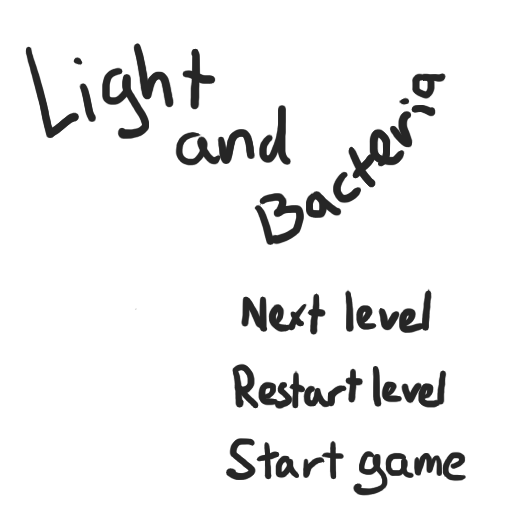 Light
and
Bacteria
Next level
Restart level
Start game